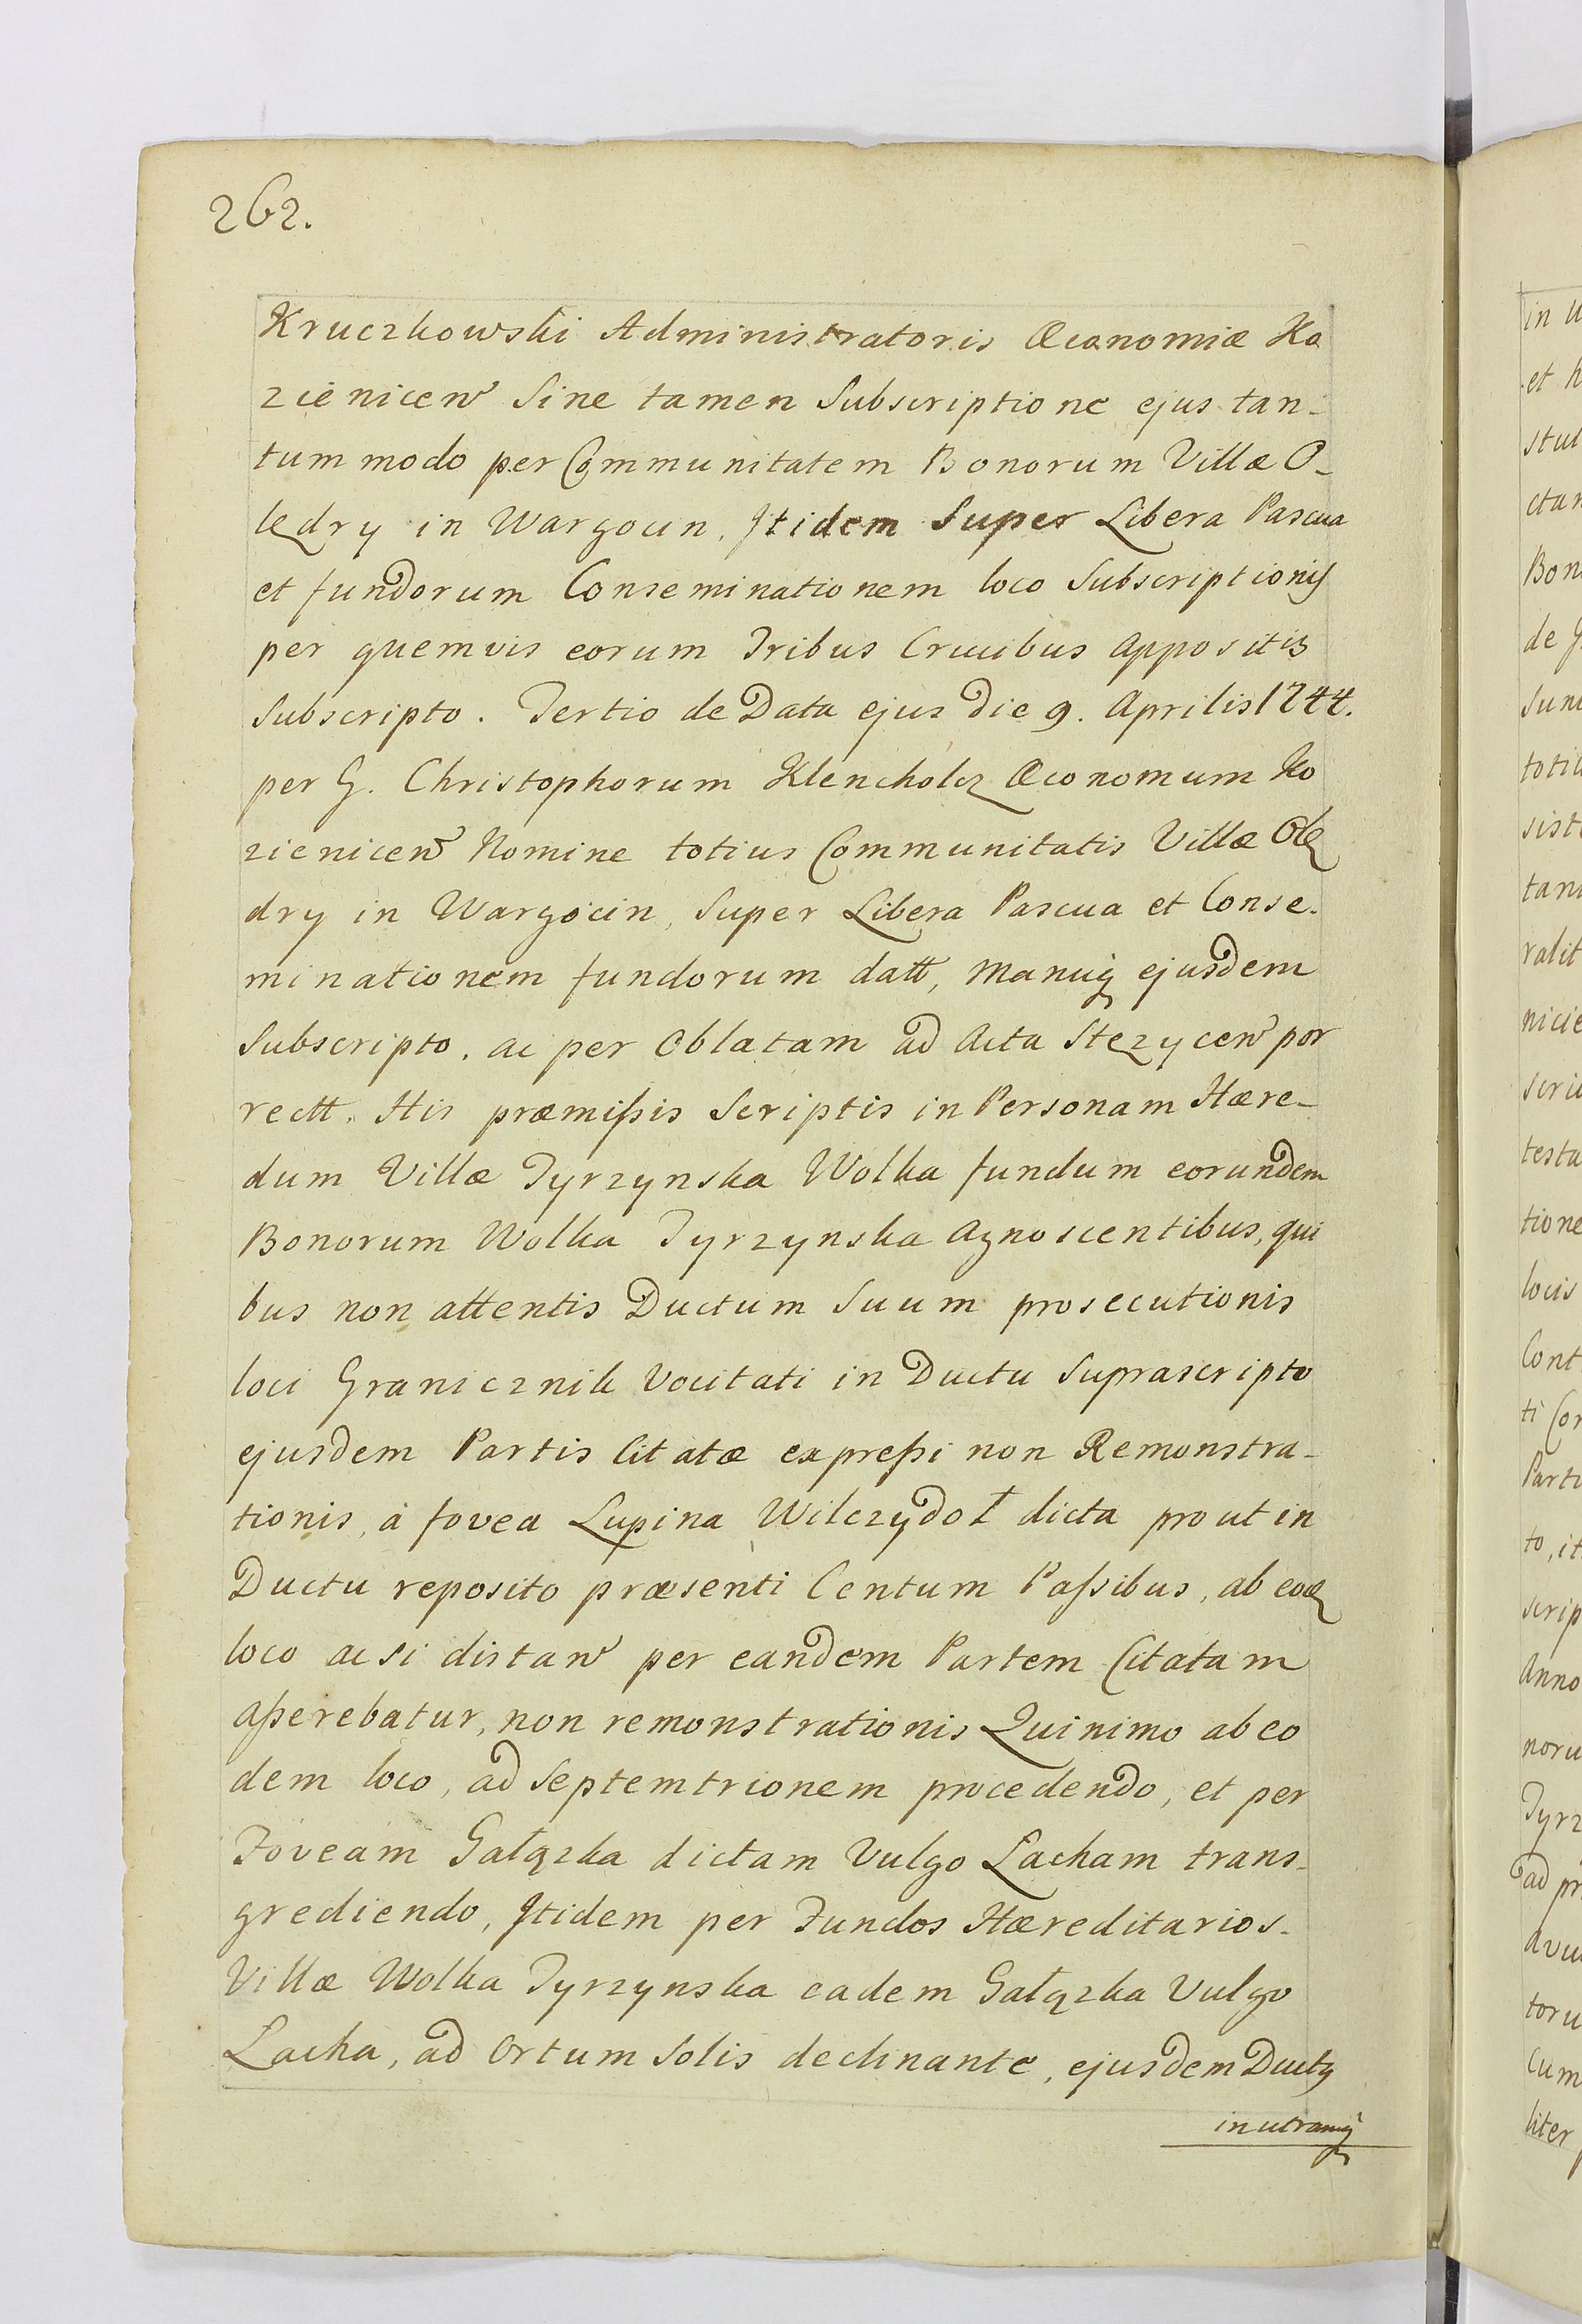 262.
Kruczkowski Administratoris Œconomiæ Ko
zienicen̄ Sine tamen Subscriptione ejus tan-
tum modo per Communitatem Bonorum Villæ O-
lędry in Wargocin. Itidem Super Libera Pascua
et fundorum Conseminationem loco Subscriptionis
per quemvis eorum Tribus Crucibus appositis
Subscripto. Tertio de Data ejus die 9. Aprilis 1744.
per G. Christophorum Klencholcz Œconomum Ko
zienicen̄ Nomine totius Communitatis Villæ Olę
dry in Wargocin, Super Libera Pascua et Conse.
minationem fundorum datt, manuq̨ ejusdem
Subscripto. ac per Oblatam ad Acta Stęzycen̄ por
rectt. His præmißis Scriptis in Personam Hære-
dum Villæ Tyrzynska Wolka fundum eorundem
Bonorum Wolka Tyrzynska agnoscentibus, qui
bus non attentis Ductum Suum prosecutionis
loci Granicznik Vocitati in Ductu Suprascripto
ejusdem Partis Citatæ expreßi non Remonstra-
tionis, à fovea Lupina Wilczydoł dicta prout in
Ductu reposito præsenti Centum Paßibus, ab eodē
loco ac si distan̄ per eandem Partem Citatam
aßerebatur, non remonstrationis Quinimo ab eo
dem loco, ad Septemtrionem procedendo, et per
Foveam Gałązka dictam Vulgo Lacham trans-
grediendo, Itidem per Fundos Hæreditarios.
Villæ Wolka Tyrzynska eadem Gałązka Vulgo
Lacha, ad Ortum Solis declinante, ejusdem Ductus
in utramq̨
in
et
de
Bon
totiu
tan
ralit
nicie
testa
tione
locis
Cont
Parti
scrip
Anno
noru
Tyrz
ad pr
toru
cum
liter